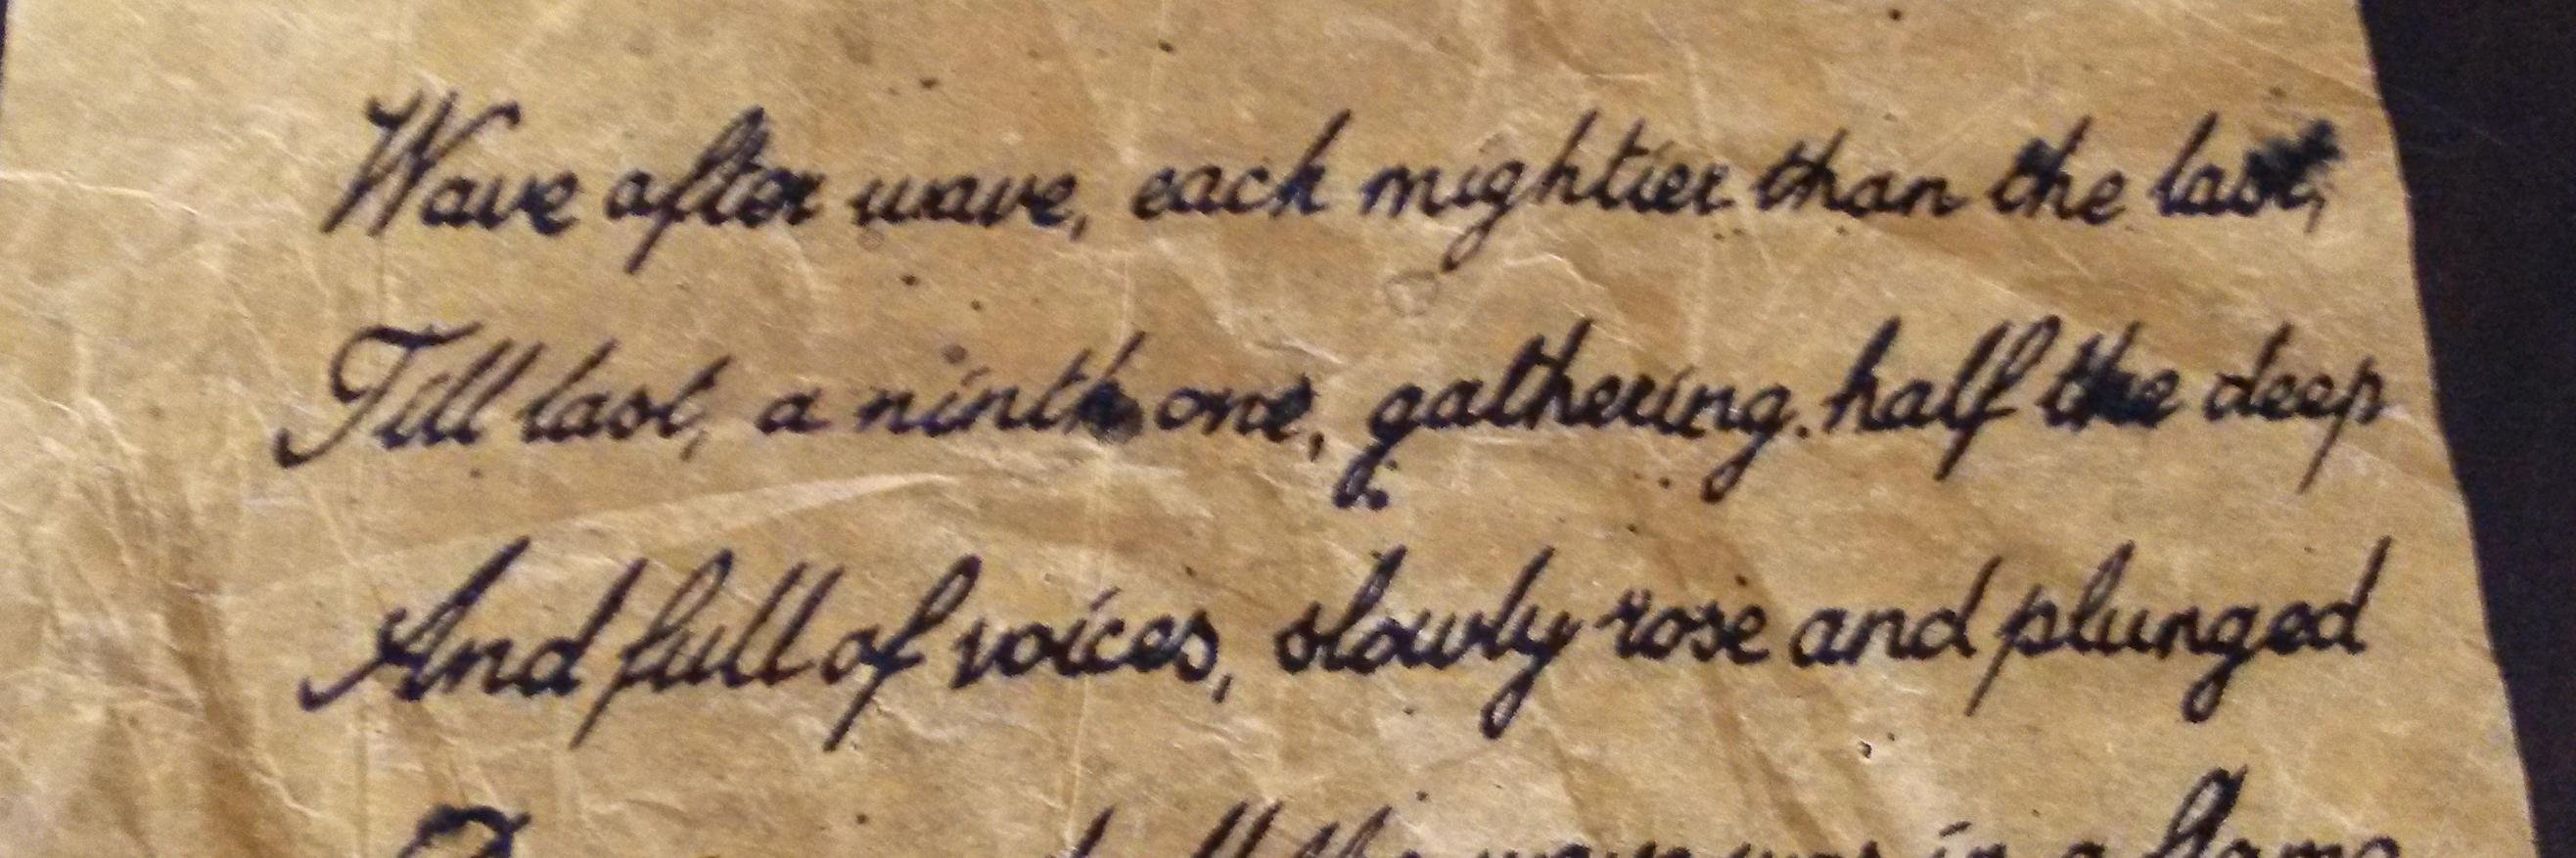 Wave after wave, each mightier than the last,
Till last, a ninth one, gathering half the deep
And full of voices, slowly rose and plunged
all the wave was in a flame